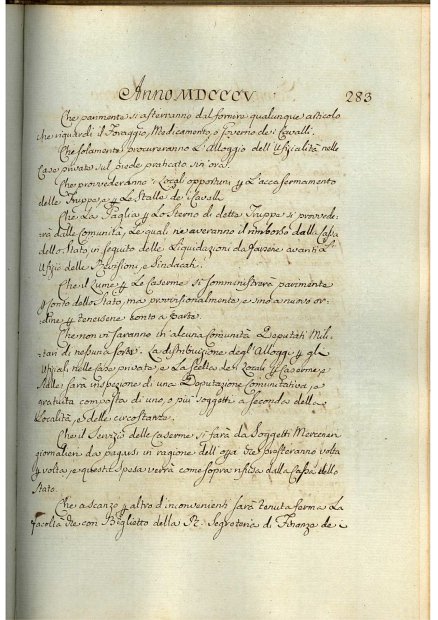 Anno MDCCCV 283
Che parimente si asterranno dal fornire qualunque articolo
che riguardi il Foraggio, Medicamento, o governo de' Cavalli.
Che solamente procureranno L'Alloggio dell'Ufizialità nelle
Case private sul piede praticato sin'ora.
Che provvederanno i Locali opportuni p l'accasermamento
delle Truppe e p Le Stalle de' Cavalli
Che La Paglia p Lo Sterno di dette Truppe si provvede-
rà dalle Comunità, Le quali ne averanno il rimborso dalla Cassa
dello Stato in seguito delle Liquidazioni da farsene avanti L'
Ufizio delle Revisioni, e Sindacati.
Che il Lume p Le Caserme si somministrerà parimente
p conto dello Stato, ma provvisionalmente e sino a nuovo or-
dine p tenersene Conto a parte.
Che non vi saranno in alcuna Comunità Deputati Mili-
tari di nessuna sorte. La distribuzione degl'Alloggi p gl'
Ufiziali nelle Case private, e La scelta de' Locali p Caserme, e
Stalle sarà inspezione di una Deputazione Comunitativa, e
gratuita composta di uno, o più soggetti a seconda della
Località, e delle circostanze.
Che il servizio delle Caserme si farà da Soggetti Mercenari
giornalieri da pagarsi in ragione dell'opra che presteranno volta
p volta, e questa spesa verrà come sopra rifusa dalla Cassa dello
Stato.
Che a scanzo p altro d'inconvenienti sarà tenuta ferma La
facoltà che con Biglietto della R. Segreteria di Finanze de